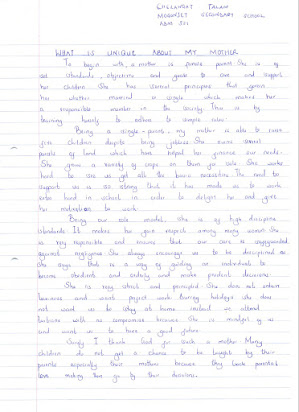 CHELANGAT TALAM
MOGONJET SECONDARY SCHOOL
ADM 331
WHAT IS UNIQUE ABOUT MY MOTHER
To begin with, a mother is female parent. She is of
set standards, objectives and goals to care and support
her children. She has several principles that govern
her whether married or single which makes her
a responsible member in the society. This is by
learning how to adhere to simple rules.
Being a single-parent, my mother is able to raise
five children despite being jobless. She owns several
parcels of land which have helped her generate our needs.
She grows a variety of crops on them for sale. She works
hard to see us get all the basic necessities. The need to
support us is so strong that it has made us to work
extra hard in school in order to delight her and give
her motivation to work.
Being our role model, she is of high discipline
standards. It makes her gain respect among many women. She
is very responsible and ensures that our care is safeguarded
against negligence. She always encourages us to be disciplined as
she says that is a way of guiding an individual to
become obedient and orderly and make prudent decisions.
She is very strict and principled. She does not entertain
laziness and want project work. During holidays she does
not want us to stay at home instead we attend
tuitions with no compromise because she is mindful of us
and want us to have a good future.
Surely I thank God for such a mother. Many
children do not get a chance to be taught by their
parents especially their mothers because they lack parental
love making them go by their decisions.